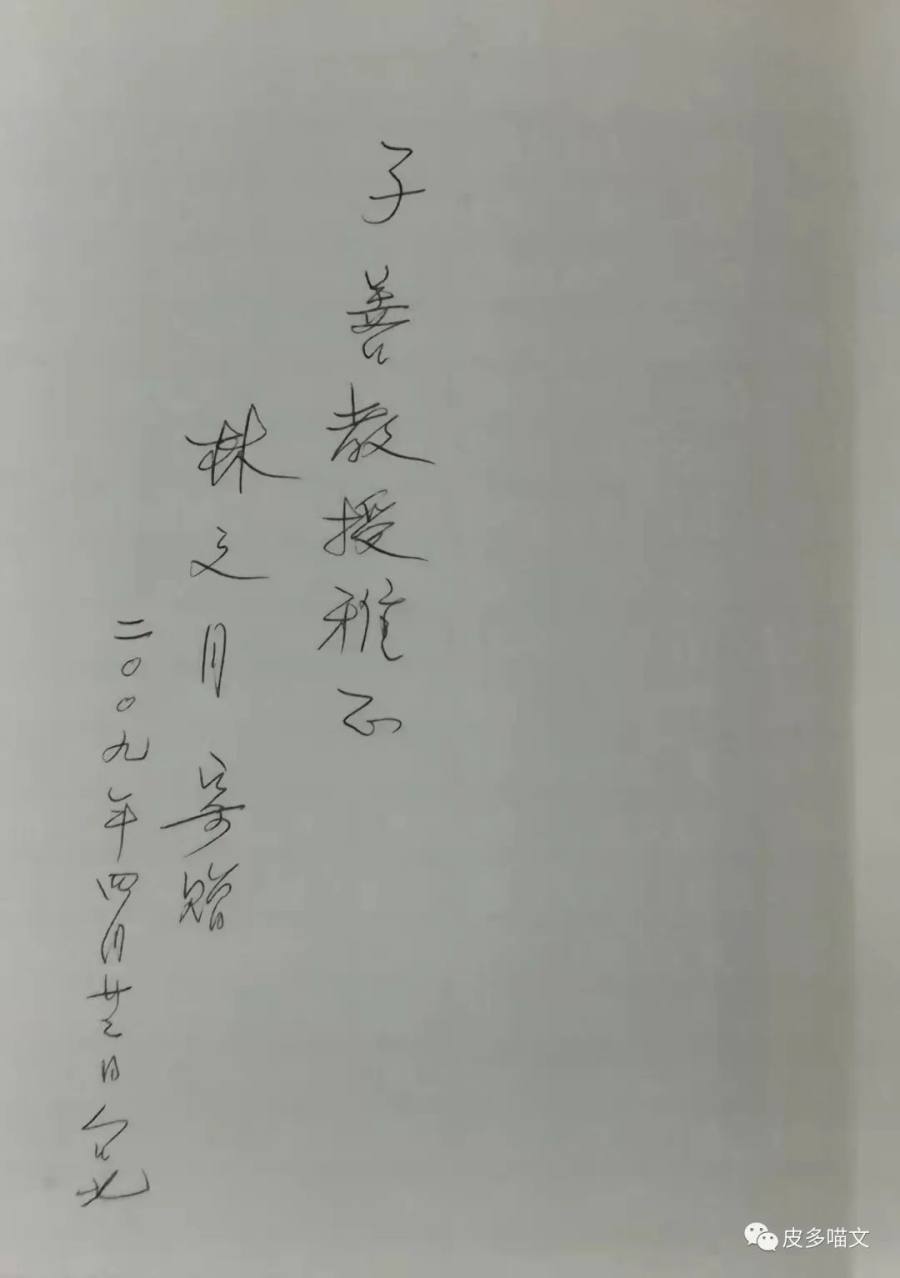 子善教授雅正
林文月 寄贈
二〇〇九年四月廿三日台北
皮多喵文